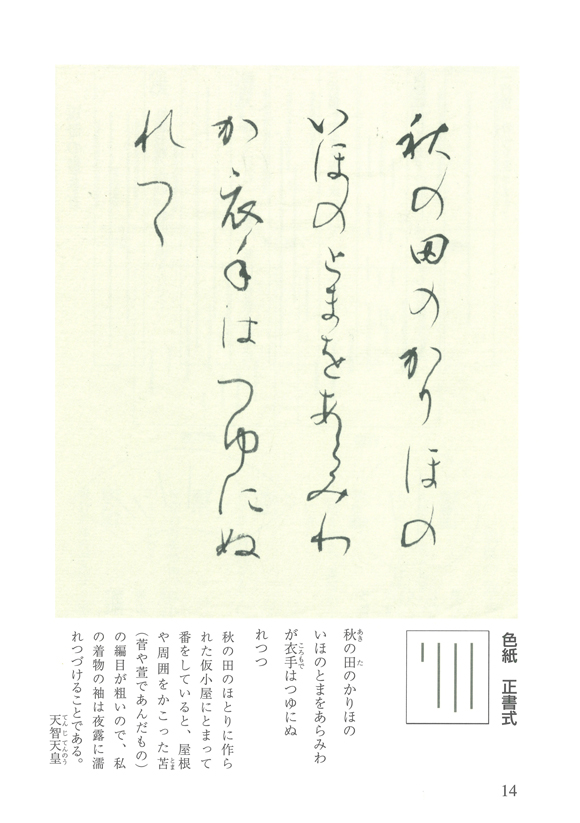 秋の田のかりほの
いほのとまをあらみわ
か衣手はつゆにぬ
れつゝ
色紙　正書式
秋の田のかりほの
あき　た
いほのとまをあらみわ
が衣手はつゆにぬ
ころもで
れつつ
秋の田のほとりに作ら
れた仮小屋にとまって
番をしていると、屋根
や周囲をかこった苫
とま
（菅や萱であんだもの）
の編目が粗いので、私
の着物の袖は夜露に濡
れつづけることである。
天智天皇
てんじてんのう
14